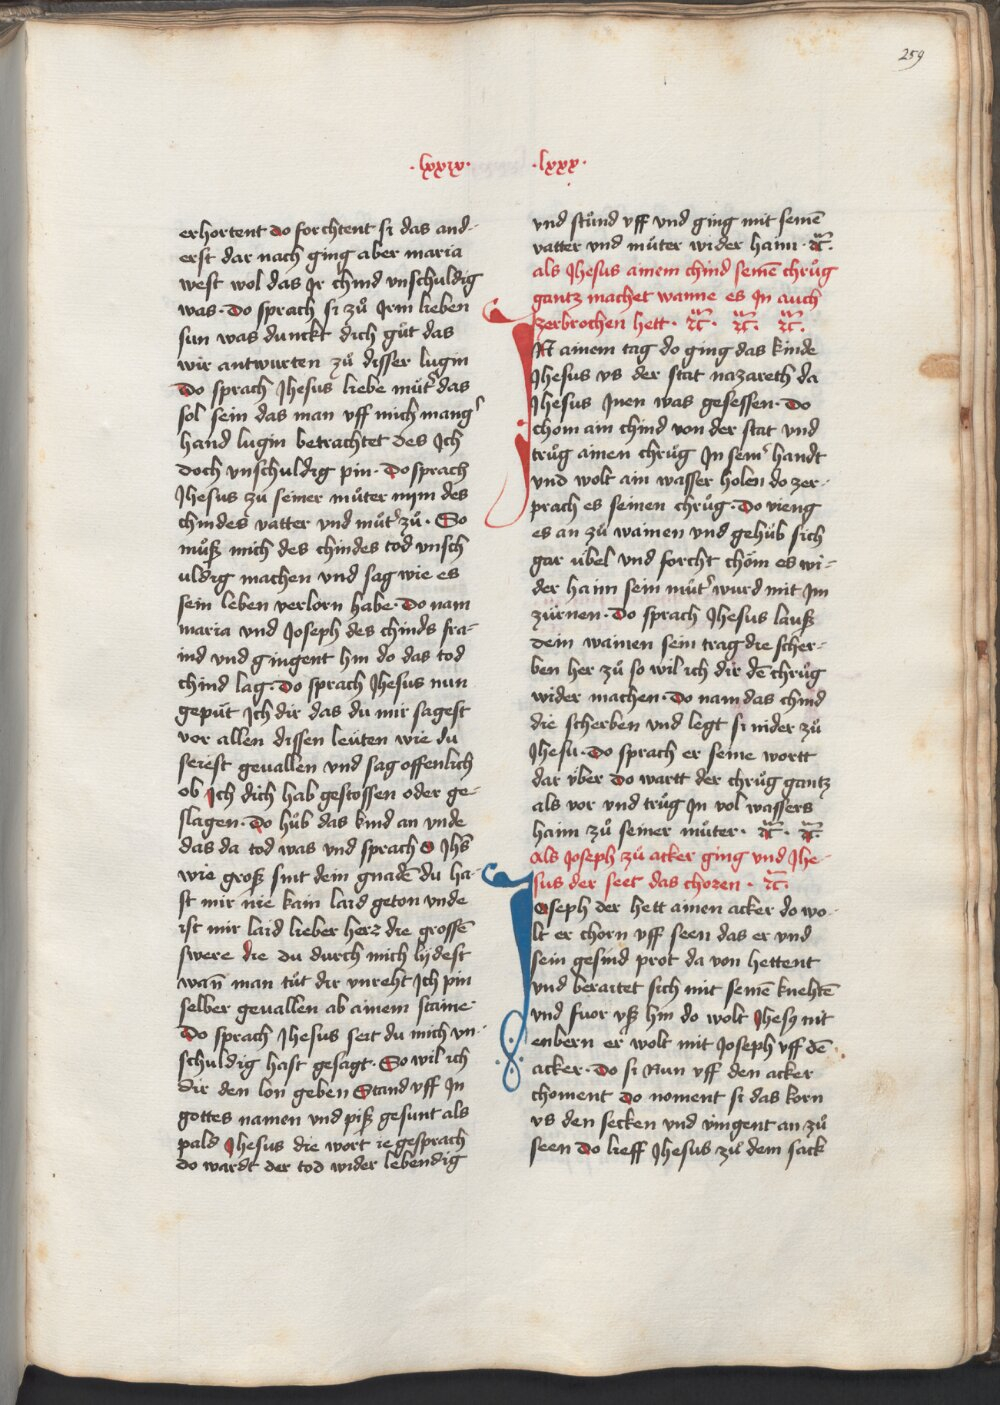 259
·lxxix·
·lxxx·
erhortent do forchtent si das and-
erst dar nach ging aber maria
west wol das Jr chind vnschuldig
was· Do sprach si zů Jrm lieben
sun was dunckt dich gůt das
wir antwurten zů disser lugin
Do sprach Jhesus liebe můt᾿ das
sol sein das man vff mich mang᾿
hand lugin betrachtet des Jch
doch vnschuldig pin· Do sprach
Jhesus zu seiner můter nym des
chindes vatter und můt᾿ zů· So
můß mich des chindes tod vnsch
uldig machen vnd sag wie es
sein leben verlorn habe· Do nam
maria vnd Joseph des chinds fra-
ind vnd gingent hin do das tod
chind lag· Do sprach Jhesus nun
gepüt Jch dir das du mir sagest
vor allen dissen leüten wie du
seiest geuallen vnd sag offenlich
ob Jch dich hab gestossen oder ge-
slagen· Do hůb das kind an vnde
das da tod was vnd sprach O Jhs̄
wie groß sint dein gnadē du ha-
st mir nie kain laid geton vnde
ist mir laid lieber herz die grossē
swere die du durch mich lijdest
wañ man tůt dir vnreht Jch pin
selber geuallen ab ainem staine·
Do sprach Jhesus seit du mich vn-
schuldig hast gesagt· So wil ich
dir den lon geben Stand vff Jn
gottes namen vnd piß gesunt als
pald Jhesus die wort ie gesprach
do wardt der tod wider lebendig
vnd stůnd vff vnd ging mit seinē
vatter vnd můter wider haim· ꝛc̄·
als Jhesus ainem chind seinē chrůg
gantz machet wanne es Jn auch
zerbrochen hett· ꝛc̄· ꝛc̄· ꝛc̄·
JN ainem tag do ging das kinde
Jhesus vs der stat nazareth da
Jhesus Jnen was gesessen· Do
chom ain chind von der stat vnd
trůg ainen chrůg Jn sein᾿ handt
vnd wolt ain wasser holen do zer-
prach es seinen chrůg· Do vieng
es an zů wainen vnd gehůb sich
gar übel vnd forcht chöm es wi-
der haim sein můt᾿ wurd mit Jm
zürnen· Do sprach Jhesus lauß
dein wainen sein trag die scher-
ben her zů so wil ich dir dē chrůg
wider machen· Do nam das chind
die scherben vnd legt si nider zů
Jhesu· Do sprach er seine wortt
dar über Do wartt der chrůg gantz
als vor vnd trůg Jn vol wassers
haim zů seiner můter· ꝛc̄· ꝛc̄·
Als Joseph zů acker ging vnd Jhe-
sus der seet das choren· ꝛc̄·
JOseph der hett ainen acker do wo-
lt er chorn vff seen das er vnd
sein gesind prot da von hettent
vnd beraitet sich mit seinē knehtē
vnd fuor vß hin do wolt Jhesꝰ nit
enbern er wolt mit Joseph vff dē
acker· Do si Nun vff den acker
choment Do noment si das korn
vs den secken vnd vingent an zů
seen Do lieff Jhesus zů dem sack